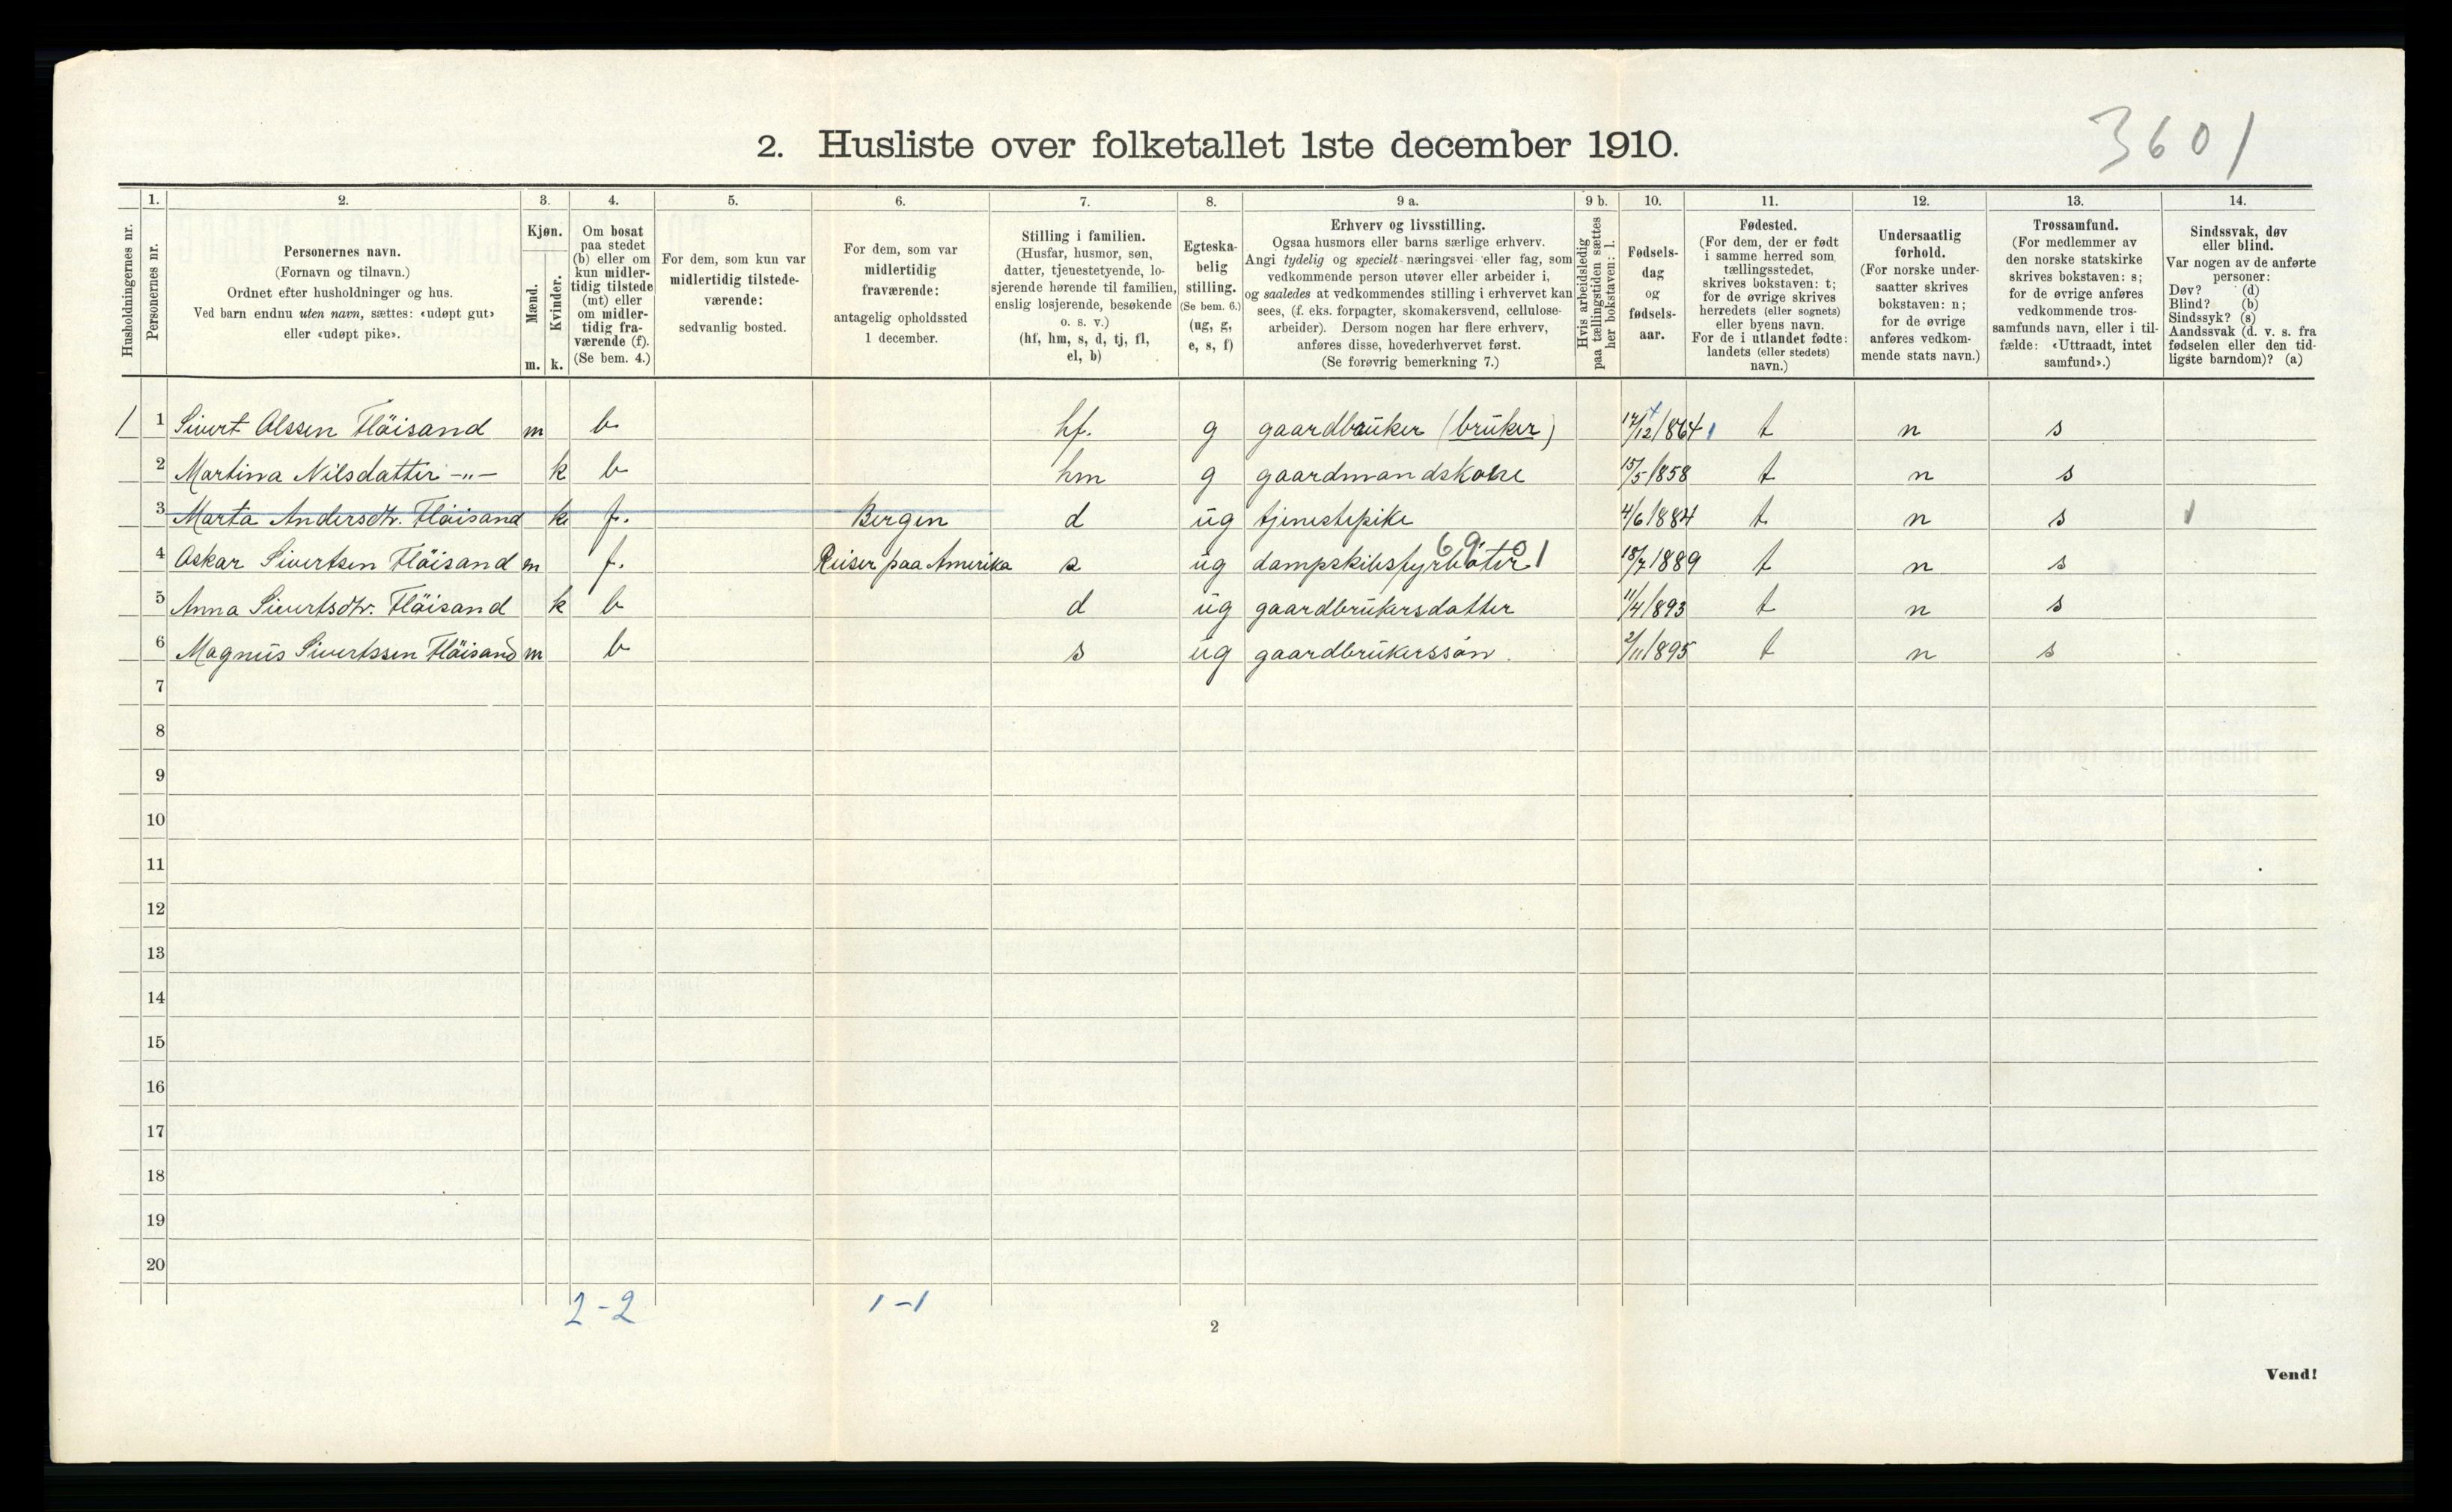 3601
2. Husliste over folketallet 1ste december 1910.
Husholdningernes nr.
1.
Personernes nr.
2.
Personernes navn.
(Fornavn og tilnavn.)
Ordnet efter husholdninger og hus.
Ved barn endnu uten navn, sættes: «udøpt gut»
eller «udøpt pike».
3.
Kjøn.
Mænd.
Kvinder.
m. k.
4.
Om bosat
paa stedet
(b) eller om
kun midler-
tidig tilstede
(mt) eller
om midler-
tidig fra-
værende (f).
(Se bem. 4.)
5.
For dem, som kun var
midlertidig tilstede-
værende:
sedvanlig bosted.
6.
For dem, som var
midlertidig
fraværende:
antagelig opholdssted
1 december.
7.
Stilling i familien.
(Husfar, husmor, søn,
datter, tjenestetyende, lo-
sjerende hørende til familien,
enslig losjerende, besøkende
o. s. v.)
(hf, hm, s, d, tj, fl,
el, b)
8.
Egteska-
belig
stilling.
(Se bem. 6.)
(ug, g,
e, s, f)
9 a.
Erhverv og livsstilling.
Ogsaa husmors eller barns særlige erhverv.
Angi tydelig og specielt næringsvei eller fag, som
vedkommende person utøver eller arbeider i,
og saaledes at vedkommendes stilling i erhvervet kan
sees, (f. eks. forpagter, skomakersvend, cellulose-
arbeider). Dersom nogen har flere erhverv,
anføres disse, hovederhvervet først.
(Se forøvrig bemerkning 7.)
9 b.
Hvis arbeidsledig
paa tællingstiden sættes
her bokstaven: l.
10.
Fødsels-
dag
og
fødsels-
aar.
11.
Fødested.
(For dem, der er født
i samme herred som
tællingsstedet,
skrives bokstaven: t;
for de øvrige skrives
herredets (eller sognets)
eller byens navn.
For de i utlandet fødte:
landets (eller stedets)
navn.)
12.
Undersaatlig
forhold.
(For norske under-
saatter skrives
bokstaven: n;
for de øvrige
anføres vedkom-
mende stats navn.)
13.
Trossamfund.
(For medlemmer av
den norske statskirke
skrives bokstaven: s;
for de øvrige anføres
vedkommende tros-
samfunds navn, eller i til-
fælde: «Uttraadt, intet
samfund».)
14.
Sindssvak, døv
eller blind.
Var nogen av de anførte
personer:
Døv? (d)
Blind? (b)
Sindssyk? (s)
Aandssvak (d. v. s. fra
fødselen eller den tid-
ligste barndom)? (a)
1 1 Sivert Olssen Fløisand m b. hf. g gaardbruker (bruker) 17/12/1864 1 t n s
2 Martina Nilsdatter -"- k b hm g gaardmandskone 15/5/1858 t n s
3 Marta Andersdtr. Fløisand k f. Bergen d ug tjenestepike 4/6/1884 t n s
4 Oskar Sivertsen Fløisand m f. Reiser paa Amerika s ug dampskibsfyrbøter 18/7/1889 t n s
5 Anna Sivertsdtr. Fløisand k b d ug gaardbrukersdatter 11/4/1893 t n s
6 Magnus Sivertssen Fløisand m b s ug gaardbrukerssøn. 2/11/1895 t n s
7
8
9
10
11
12
13
14
15
16
17
18
19
20
2-2 1-1
2
Vend!